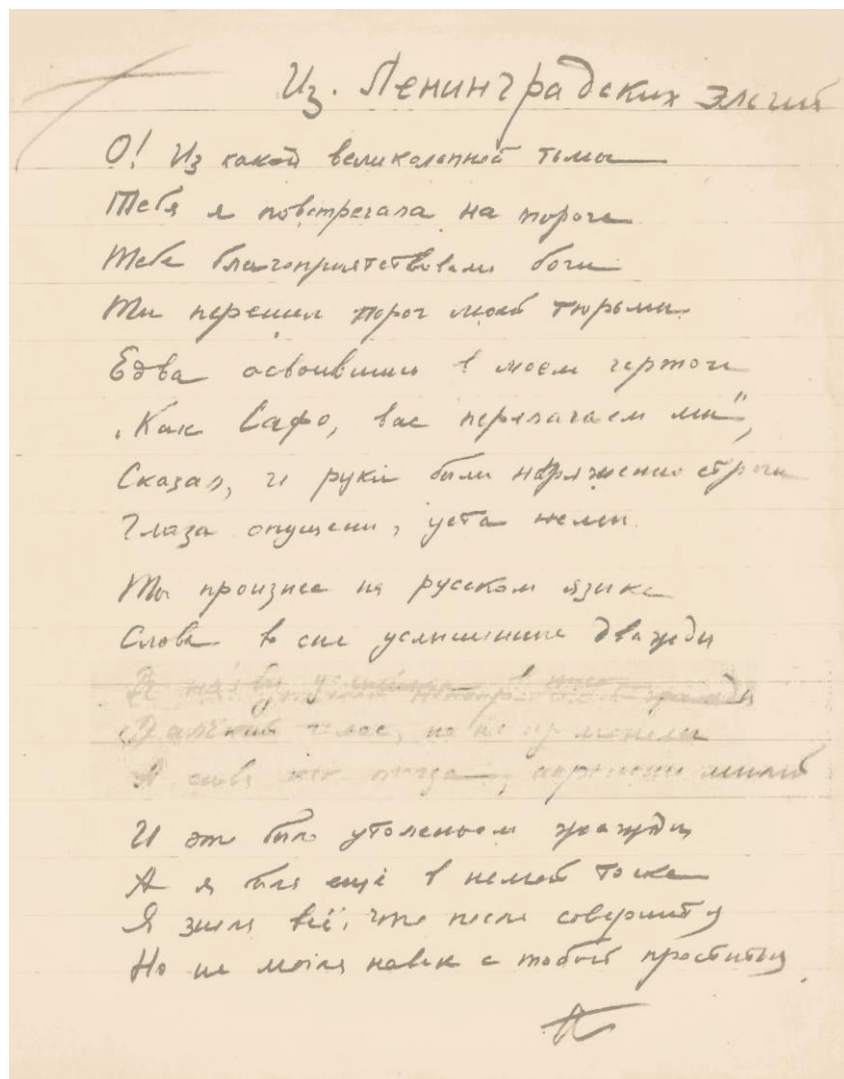 Из. Ленинградских элегий
О! Из какой великолепной тьмы
Тебя я повстречала на пороге
Тебе благоприятствовали боги
Ты перешел порог моей тюрьмы.
Едва освоившись в моем чертоге
„Как Сафо, вас перелагаем мы",
Сказал, и руки были напряженно строги
Глаза опущены, уста немы.
Ты произнес на русском языке
Слова во сне услышанные дважды
голос, но не
И это было утоленьем жажды
А я была ещё в немой тоске
Я знала всё, что после совершится
Но не могла навек с тобой проститься.
А